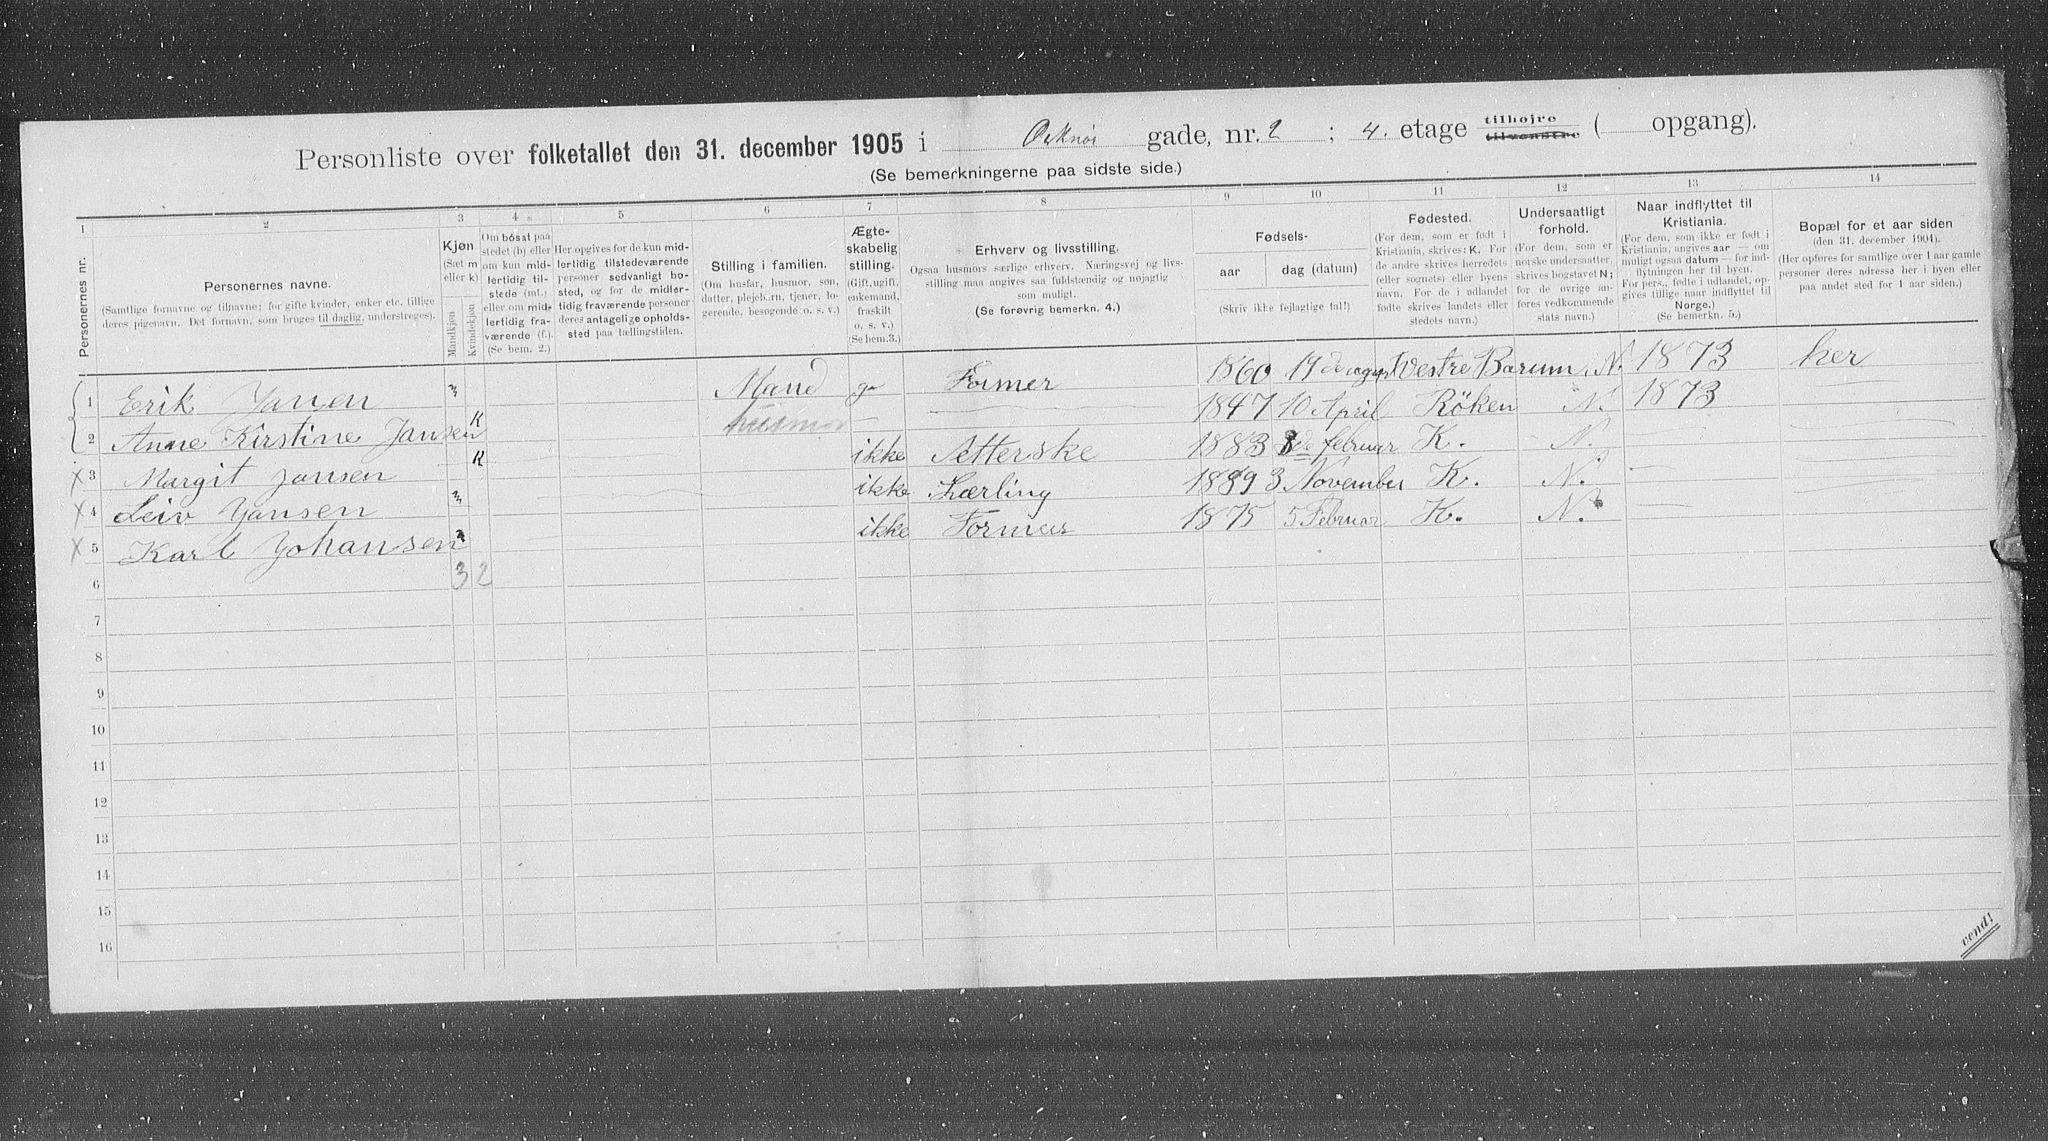 Personliste over folketallet den 31. december 1905 i Orknøi gade, nr. 2 ; 4. etage tilhøjre tilvenstre ( opgang).
(Se bemerkningerne paa sidste side.)
1 2 3 4 5 6 7 8 9 10 11 12 13 14
Personernes nr.
Personernes navne.
(Samtlige fornavne og tilnavne; for gifte kvinder, enker etc. tillige deres pigenavn. Det fornavn, som bruges til daglig, understreges).
Kjøn
(Sæt m eller k)
Mandkjøn
Kvindekjøn
Om bósat paa stedet (b) eller om kun midlertidig tilstede (mt.) eller om midlertidig fraværende (f.).
(Se bem. 2.)
Her opgives for de kun midlertidig tilstedeværende personer sedvanligt bosted, og for de midlertidig fraværende personer deres antagelige opholdssted paa tællingstiden.
Stilling i familien.
(Om husfar, husmor, søn, datter, plejebarn, tjener, logerende, besøgende o. s. v.)
Ægteskabelig stilling.
(Gift, ugift, enkemand, fraskilt o. s. v.)
(Se bem.3.)
Erhverv og livsstilling.
Ogsaa husmors særlige erhverv. Næringsvej og livsstilling maa angives saa fuldstændig og nøjagtig som muligt.
(Se forøvrig bemerkn. 4.)
Fødsels-
aar
dag (datum)
(Skriv ikke fejlagtige tal!)
Fødested.
(For dem, som er født i Kristiania, skrives: K. For de andre skrives herredets (eller sognets) eller byens navn. For de i udlandet fødte skrives landets eller stedets navn.)
Undersaatligt forhold.
(For dem, som er norske undersaatter, skrives bogstavet N; for de øvrige anføres vedkommende stats navn.)
Naar indflyttet til Kristiania.
(For dem, som ikke er født i Kristiania, angives aar — om muligt ogsaa datum — for indflytningen her til byen. For pers., fødte i udlandet, opgives tillige naar indflyttet til Norge.)
(Se bemerkn. 5.)
Bopæl for et aar siden
(den 31. december 1904).
(Her opføres for samtlige over 1 aar gamle personer deres adresse her i byen eller paa andet sted for 1 aar siden.)
1 Erik Jansen m Mand g Former 1860 19 de august Vestre Barum N. 1873 her
2 Anne Kirstine Jansen K husmor — 1847 10 April Röken N. 1873
x 3 Margit Jansen K ikke Setterske 1883 8de februar K. N.
x 4 Leiv Jansen m ikke Lærling 1889 3 November K. N. —
x 5 Karl Johansen m ikke Former 1875 5 Februar K. N.
6 3 2
7
8
9
10
11
12
13
14
15
16
vend!